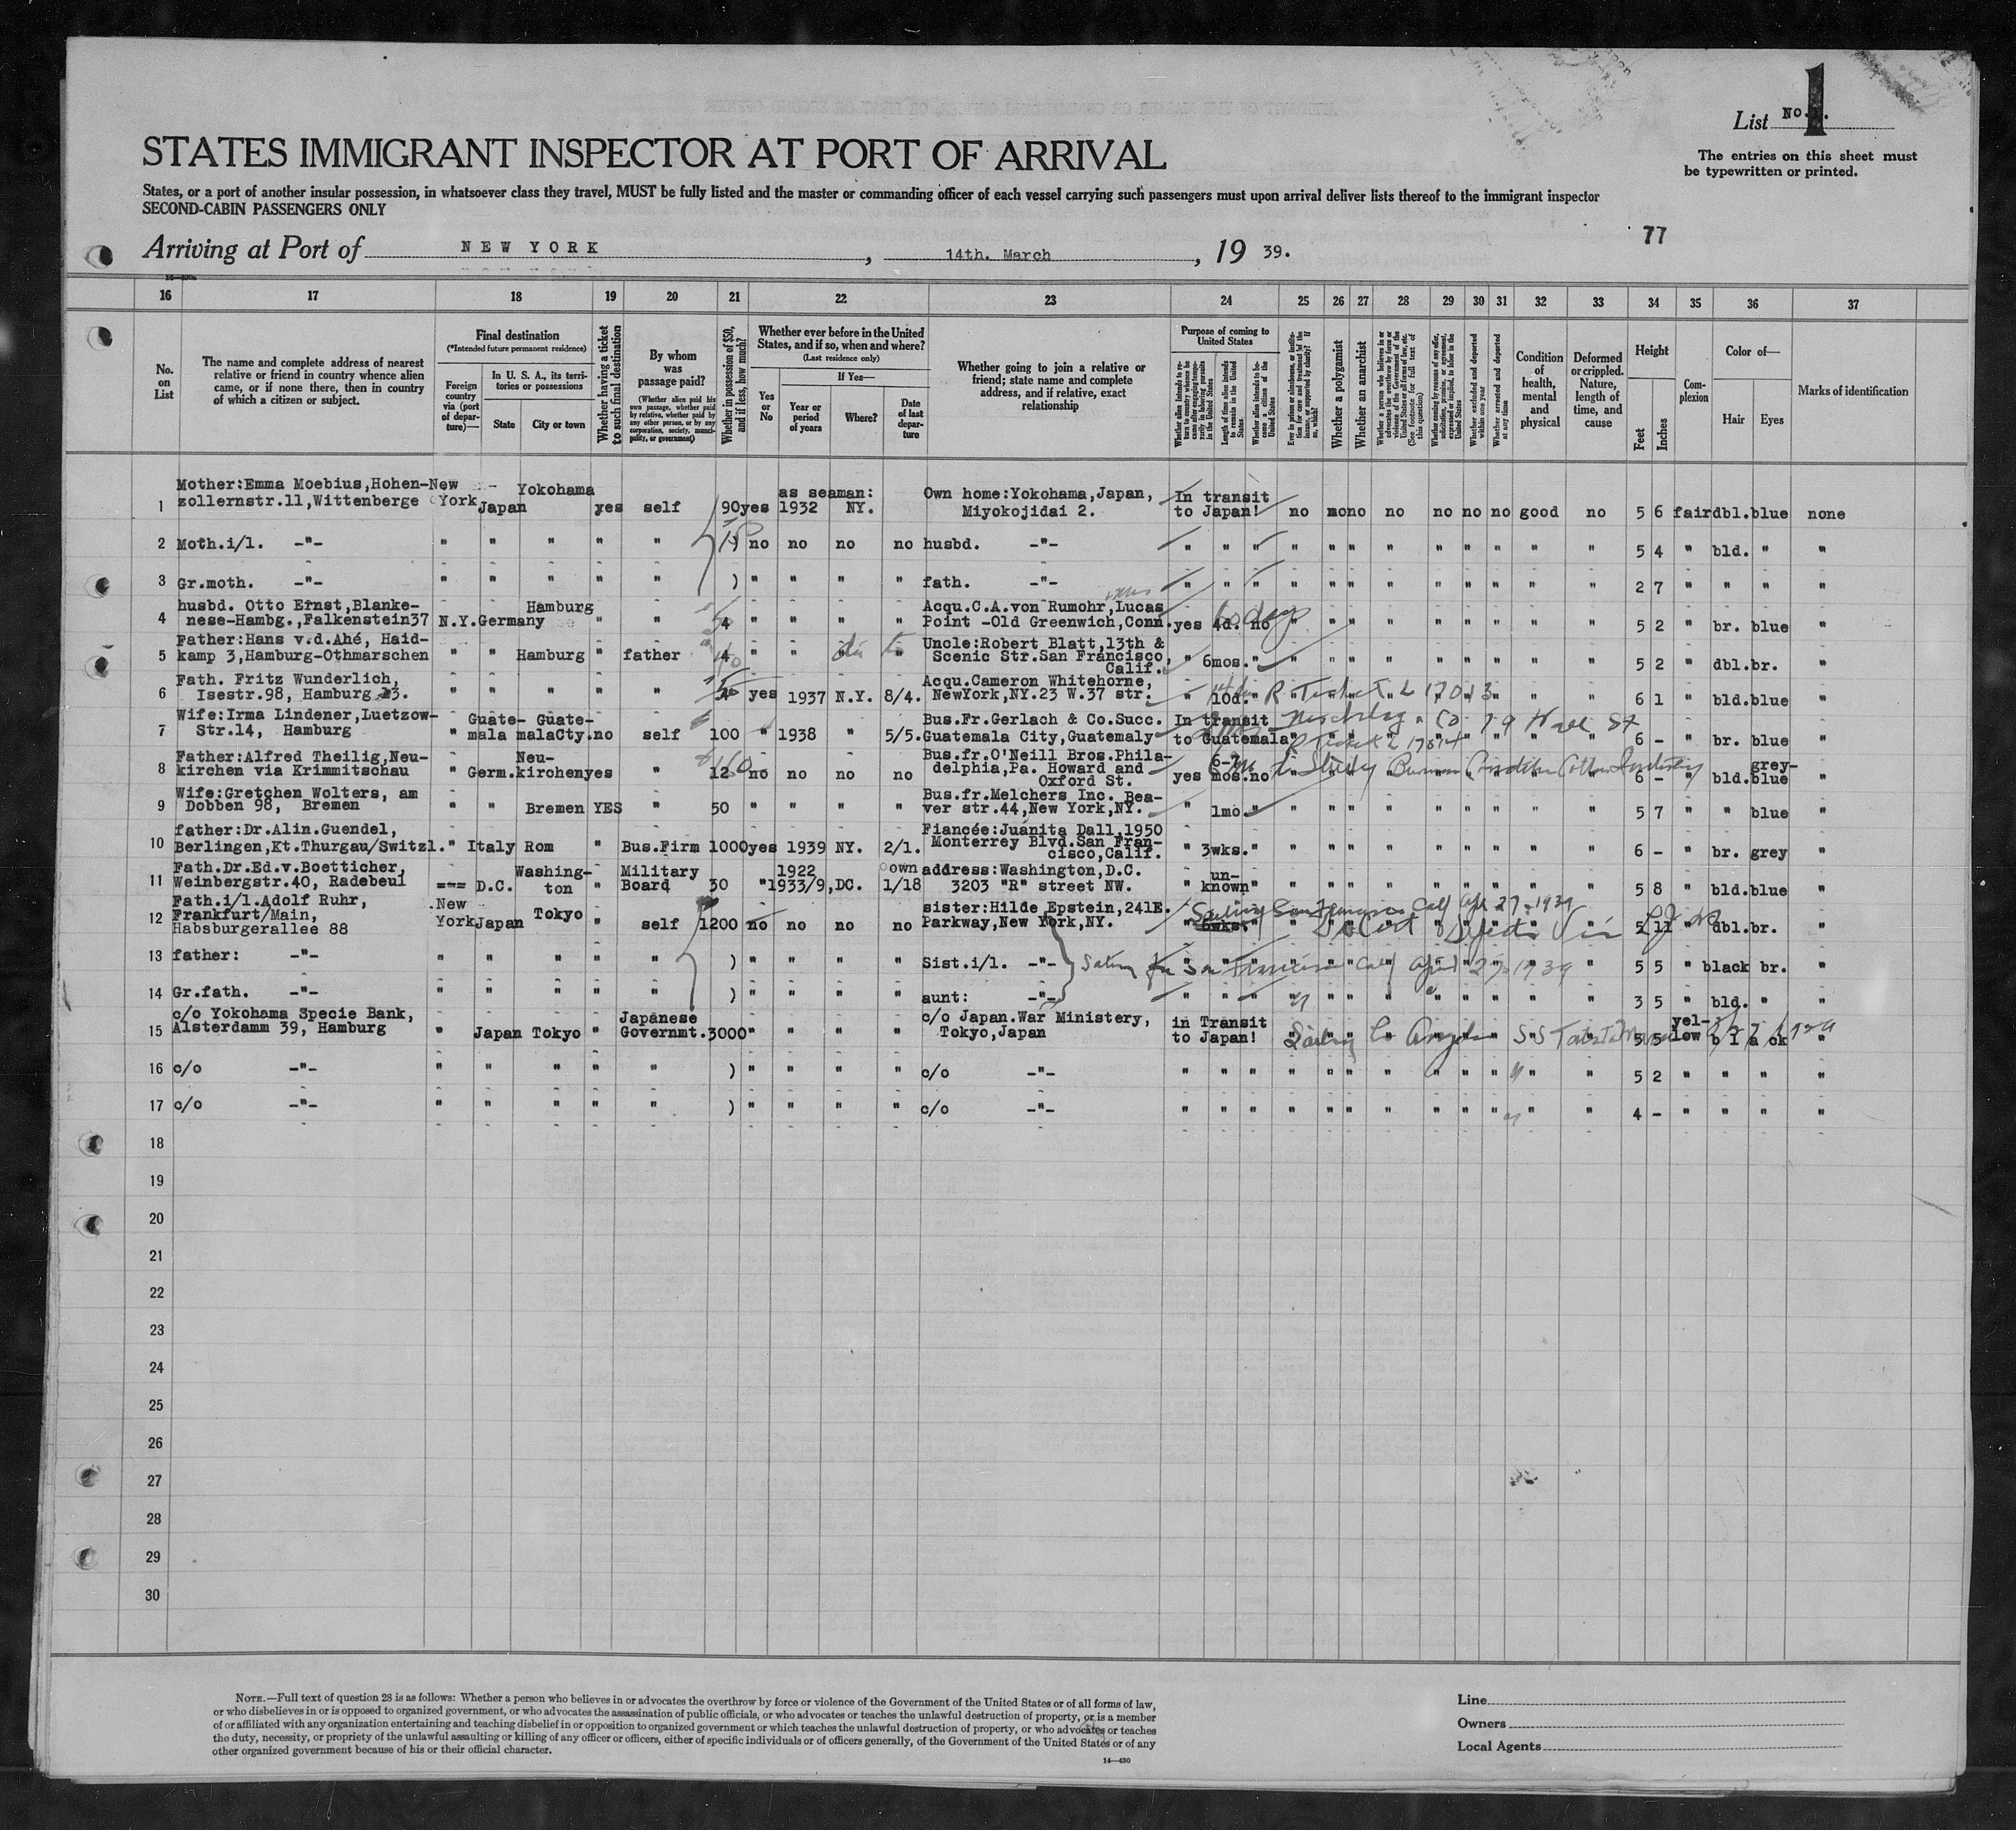 List No. 1.
The entries on this sheet must
be typewritten or printed.
STATES IMMIGRANT INSPECTOR AT PORT OF ARRIVAL
States, or a port of another insular possession, in whatsoever class they travel, MUST be fully listed and the master or commanding officer of each vessel carrying such passengers must upon arrival deliver lists thereof to the immigrant inspector
SECOND-CABIN PASSENGERS ONLY
77
Arriving at Port of NEW YORK, 14th. March, 19 39.
16 17 18 19 20 21 22 23 24 25 26 27 28 29 30 31 32 33 34 35 36 37
No. on List
The name and complete address of nearest relative or friend in country whence alien came, or if none there, then in country of which a citizen or subject.
Final destination
(*Intended future permanent residence)
Foreign country via (port of departure)—
In U. S. A., its territories or possessions
State
City or town
Whether having a ticket to such final destination
By whom was passage paid?
(Whether alien paid his own passage, whether paid by relative, whether paid by any other person, or by any corporation, society, municipality, or government)
Whether in possession of $50, and if less, how much?
Whether ever before in the United States, and if so, when and where?
(Last residence only)
Yes or No
If Yes—
Year or period of years
Where?
Date of last departure
Whether going to join a relative or friend; state name and complete address, and if relative, exact relationship
Purpose of coming to United States
Whether alien intends to return to country whence he came after engaging temporarily in laboring pursuits in the United States
Length of time alien intends to remain in the United States
Whether alien intends to become a citizen of the United States
Ever in prison or almshouse, or institution for care and treatment of the insane, or supported by charity? If so, which?
Whether a polygamist
Whether an anarchist
Whether a person who believes in or advocates the overthrow by force or violence of the Government of the United States or all forms of law, etc. (See footnote for full text of this question)
Whether coming by reason of any offer, solicitation, promise, or agreement, expressed or implied, to labor in the United States
Whether excluded and deported within one year
Whether arrested and deported at any time
Condition of health, mental and physical
Deformed or crippled. Nature, length of time, and cause
Height
Feet
Inches
Complexion
Color of—
Hair
Eyes
Marks of identification
1 Mother:Emma Moebius,Hohenzollernstr.11,Wittenberge New York Japan Yokohama yes self 90 yes as seaman: 1932 NY. Own home:Yokohama,Japan, Miyokojidai 2. In transit to Japan! no no no no no no no good no 5 6 fair dbl. blue none
2 Moth.i/l. -"- " " " " " no no no no husbd. -"- " " " " " " " " " " " " 5 4 " bld. " "
3 Gr.moth. -"- " " " " " ) " " " " fath. -"- " " " " " " " " " " " " 2 7 " " " "
4 husbd. Otto Ernst,Blankenese-Hambg.,Falkenstein37 N.Y. Germany Hamburg " " 4 " " " " Acqu.C.A.von Rumohr,Lucas Point -Old Greenwich,Conn. yes 4d. no 60 days " " " " " " " " " 5 2 " br. blue "
5 Father:Hans v.d.Ahé, Haidkamp 3,Hamburg-Othmarschen " " Hamburg " father 4 " " " " Uncle:Robert Blatt,13th & Scenic Str.San Francisco, Calif. " 6mos. " " " " " " " " " " 5 2 " dbl. br. "
6 Fath. Fritz Wunderlich, Isestr.98, Hamburg 13. " " " " " yes 1937 N.Y. 8/4. Acqu.Cameron Whitehorne, NewYork,NY.23 W.37 str. " 10d. " R Ticket L 17013 " " 6 1 " bld. blue "
7 Wife:Irma Lindener,Luetzow-Str.14, Hamburg " Guatemala Guatemala Cty. no self 100 " 1938 " 5/5. Bus.Fr.Gerlach & Co.Succ. Guatemala City,Guatemaly In transit to Guatemala " " " " " " " " " 79 Wall St 6 - " br. blue "
8 Father:Alfred Theilig,Neukirchen via Krimmitschau " Germ. Neukirchen yes " 12 no no no no Bus.fr.O'Neill Bros.Philadelphia,Pa. Howard and Oxford St. yes 6-7 mos. no " " " " " " " " " 6 - " bld. grey-blue "
9 Wife:Gretchen Wolters, am Dobben 98, Bremen " " Bremen YES " 50 " " " " Bus.fr.Melchers Inc. Beaver str.44,New York,NY. " 1mo. " " " " " " " " " " 5 7 " " blue "
10 father:Dr.Alin.Guendel, Berlingen,Kt.Thurgau/Switzl. " Italy Rom " Bus.Firm 1000 yes 1939 NY. 2/1. Fiancée:Juanita Dall,1950 Monterrey Blvd.San Francisco,Calif. " 3wks. " " " " " " " " " " 6 - " br. grey "
11 Fath.Dr.Ed.v.Boetticher, Weinbergstr.40, Radebeul === D.C. Washington " Military Board 30 " 1922 1933/9,DC. 1/18 own address:Washington,D.C. 3203 "R" street NW. " unknown " " " " " " " " " " 5 8 " bld. blue "
12 Fath.i/l.Adolf Ruhr, Frankfurt/Main, Habsburgerallee 88 New York Japan Tokyo " self 1200 no no no no sister:Hilde Epstein,241E. Parkway,New York,NY. " 6wks. Sailing San Francisco Calif Apr 27-1939 5 11 " dbl. br. "
13 father: -"- " " " " " ) " " " " Sist.i/l. -"- Sailing San Francisco Calif April 27 1939 5 5 " black br. "
14 Gr.fath. -"- " " " " " ) " " " " aunt: -"- " " " " " " " " " " " " 3 5 " bld. " "
15 c/o Yokohama Specie Bank, Alsterdamm 39, Hamburg " Japan Tokyo " Japanese Governmt. 3000 " " " " c/o Japan.War Ministery, Tokyo,Japan in Transit to Japan! Sailing Los Angeles SS 5 5 yellow black "
16 c/o -"- " " " " " ) " " " " c/o -"- " " " " " " " " " " " " 5 2 " " " "
17 c/o -"- " " " " " ) " " " " c/o -"- " " " " " " " " " " " " 4 - " " " "
18
19
20
21
22
23
24
25
26
27
28
29
30
NOTE.—Full text of question 28 is as follows: Whether a person who believes in or advocates the overthrow by force or violence of the Government of the United States or of all forms of law,
or who disbelieves in or is opposed to organized government, or who advocates the assassination of public officials, or who advocates or teaches the unlawful destruction of property, or is a member
of or affiliated with any organization entertaining and teaching disbelief in or opposition to organized government or which teaches the unlawful destruction of property, or who advocates or teaches
the duty, necessity, or propriety of the unlawful assaulting or killing of any officer or officers, either of specific individuals or of officers generally, of the Government of the United States or of any
other organized government because of his or their official character.
14—430
Line
Owners
Local Agents